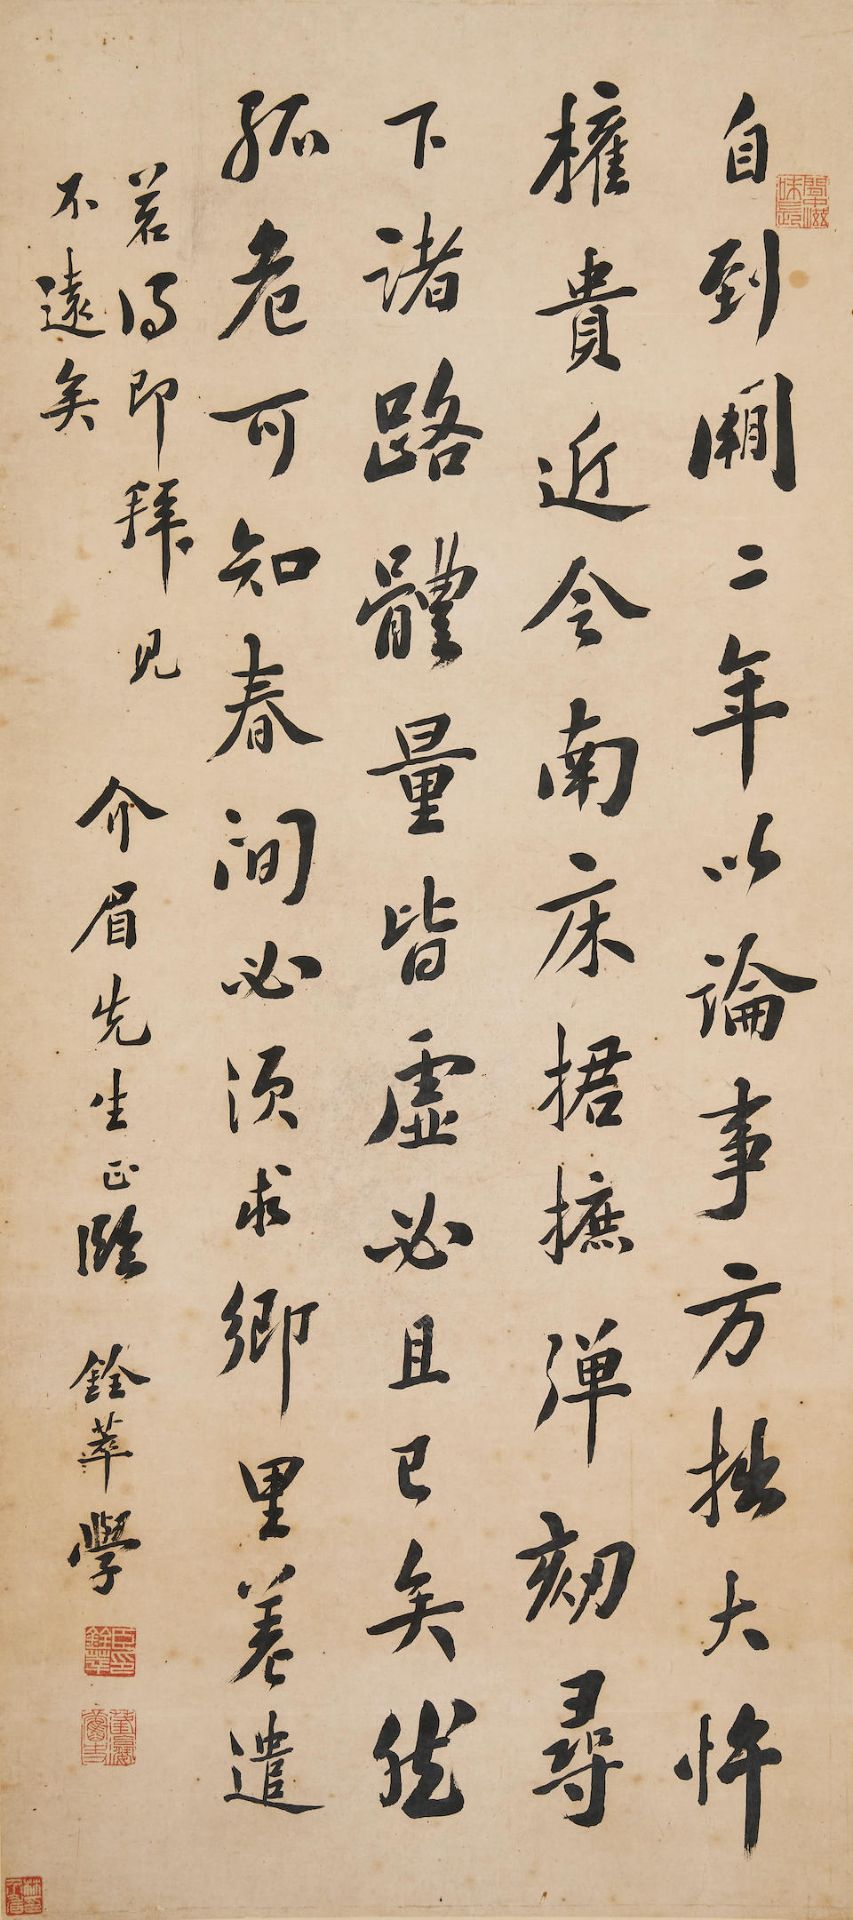 自到闕二年以論事方拙大忤
權貴近令南床捃摭弹劾尋
下諸路體量皆虛必且已矣然
孤危可知春间必須求鄉里差遣
若得即拜見
不遠矣
介眉先生正臨 銓萃學